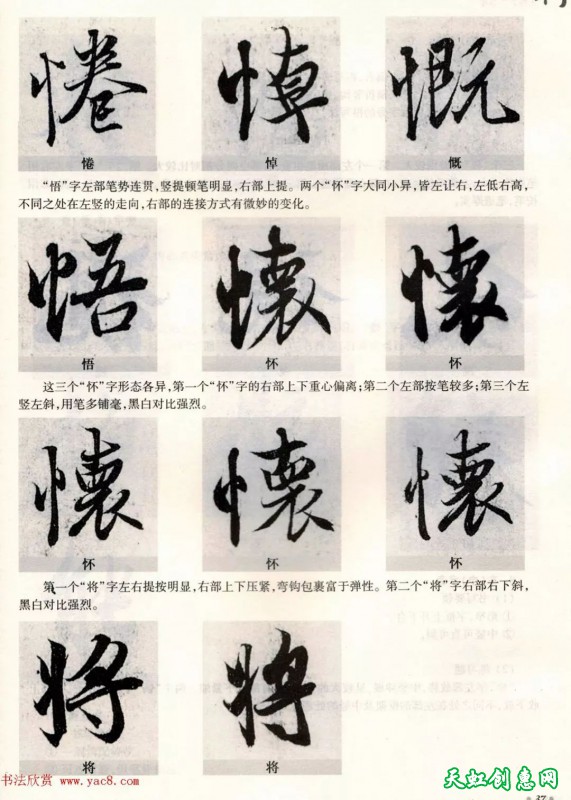 倦 悼 慨
惓 悼 慨
“悟”字左部笔势连贯,竖提顿笔明显,右部上提。两个“怀”字大同小异,皆左让右,左低右高,
不同之处在左竖的走向,右部的连接方式有微妙的变化。
悟 懷 懷
悟 怀 怀
这三个“怀”字形态各异,第一个“怀”字的右部上下重心偏离;第二个左部按笔较多;第三个左
竖左斜,用笔多铺毫,黑白对比强烈。
懷 懷 懷
怀 怀 怀
第一个“将”字左右提按明显,右部上下压紧,弯钩包裹富于弹性。第二个“将”字右部右下斜,
黑白对比强烈。
将 将
将 将
书法欣赏 www.yac8.com
天虹创意网
37